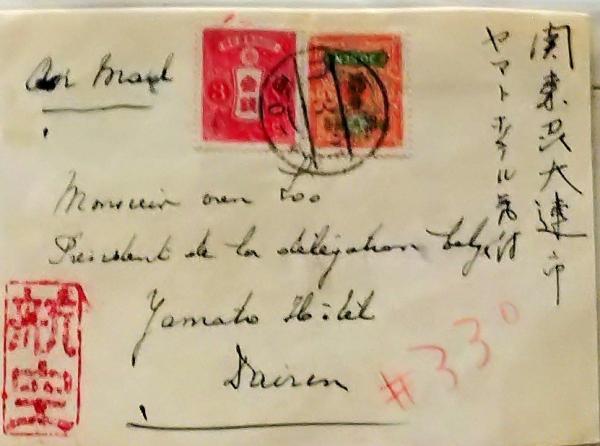 Air Mail
関東州大連市
ヤマトホテル気付
3
Monsieur van Loo
Président de la délégation belge
Yamato Hôtel
Dairen
航空
#330